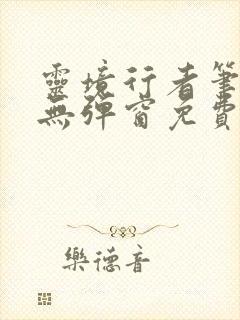 靈境行者筆
無彈窗免費
樂德音